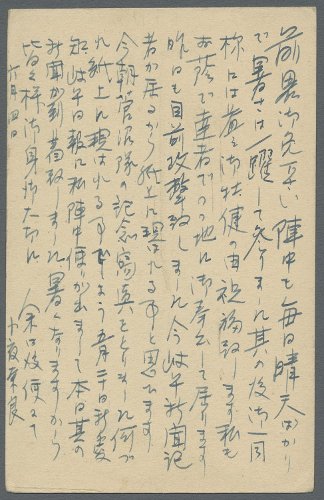 前略御免下さい陣中も毎日晴天ばかり
で暑さは一躍して参りました其の後御一同
様には益々御壮健の由祝福致します私も
お蔭で幸者でこの地に御奉公して居ります
昨日も目前攻撃致しました今岐阜新聞記
者が居るから紙上に現はれる事と思ひます
今朝菅沼隊の記念寫真をとりました何で
れ紙上に現はれる事でせう五月二十日新愛
知岐阜日報に私陣中便りが出まして本日其の
新聞が到着致しました暑くなりますから
皆々様御身御大切に 余は後便にて
六月四日